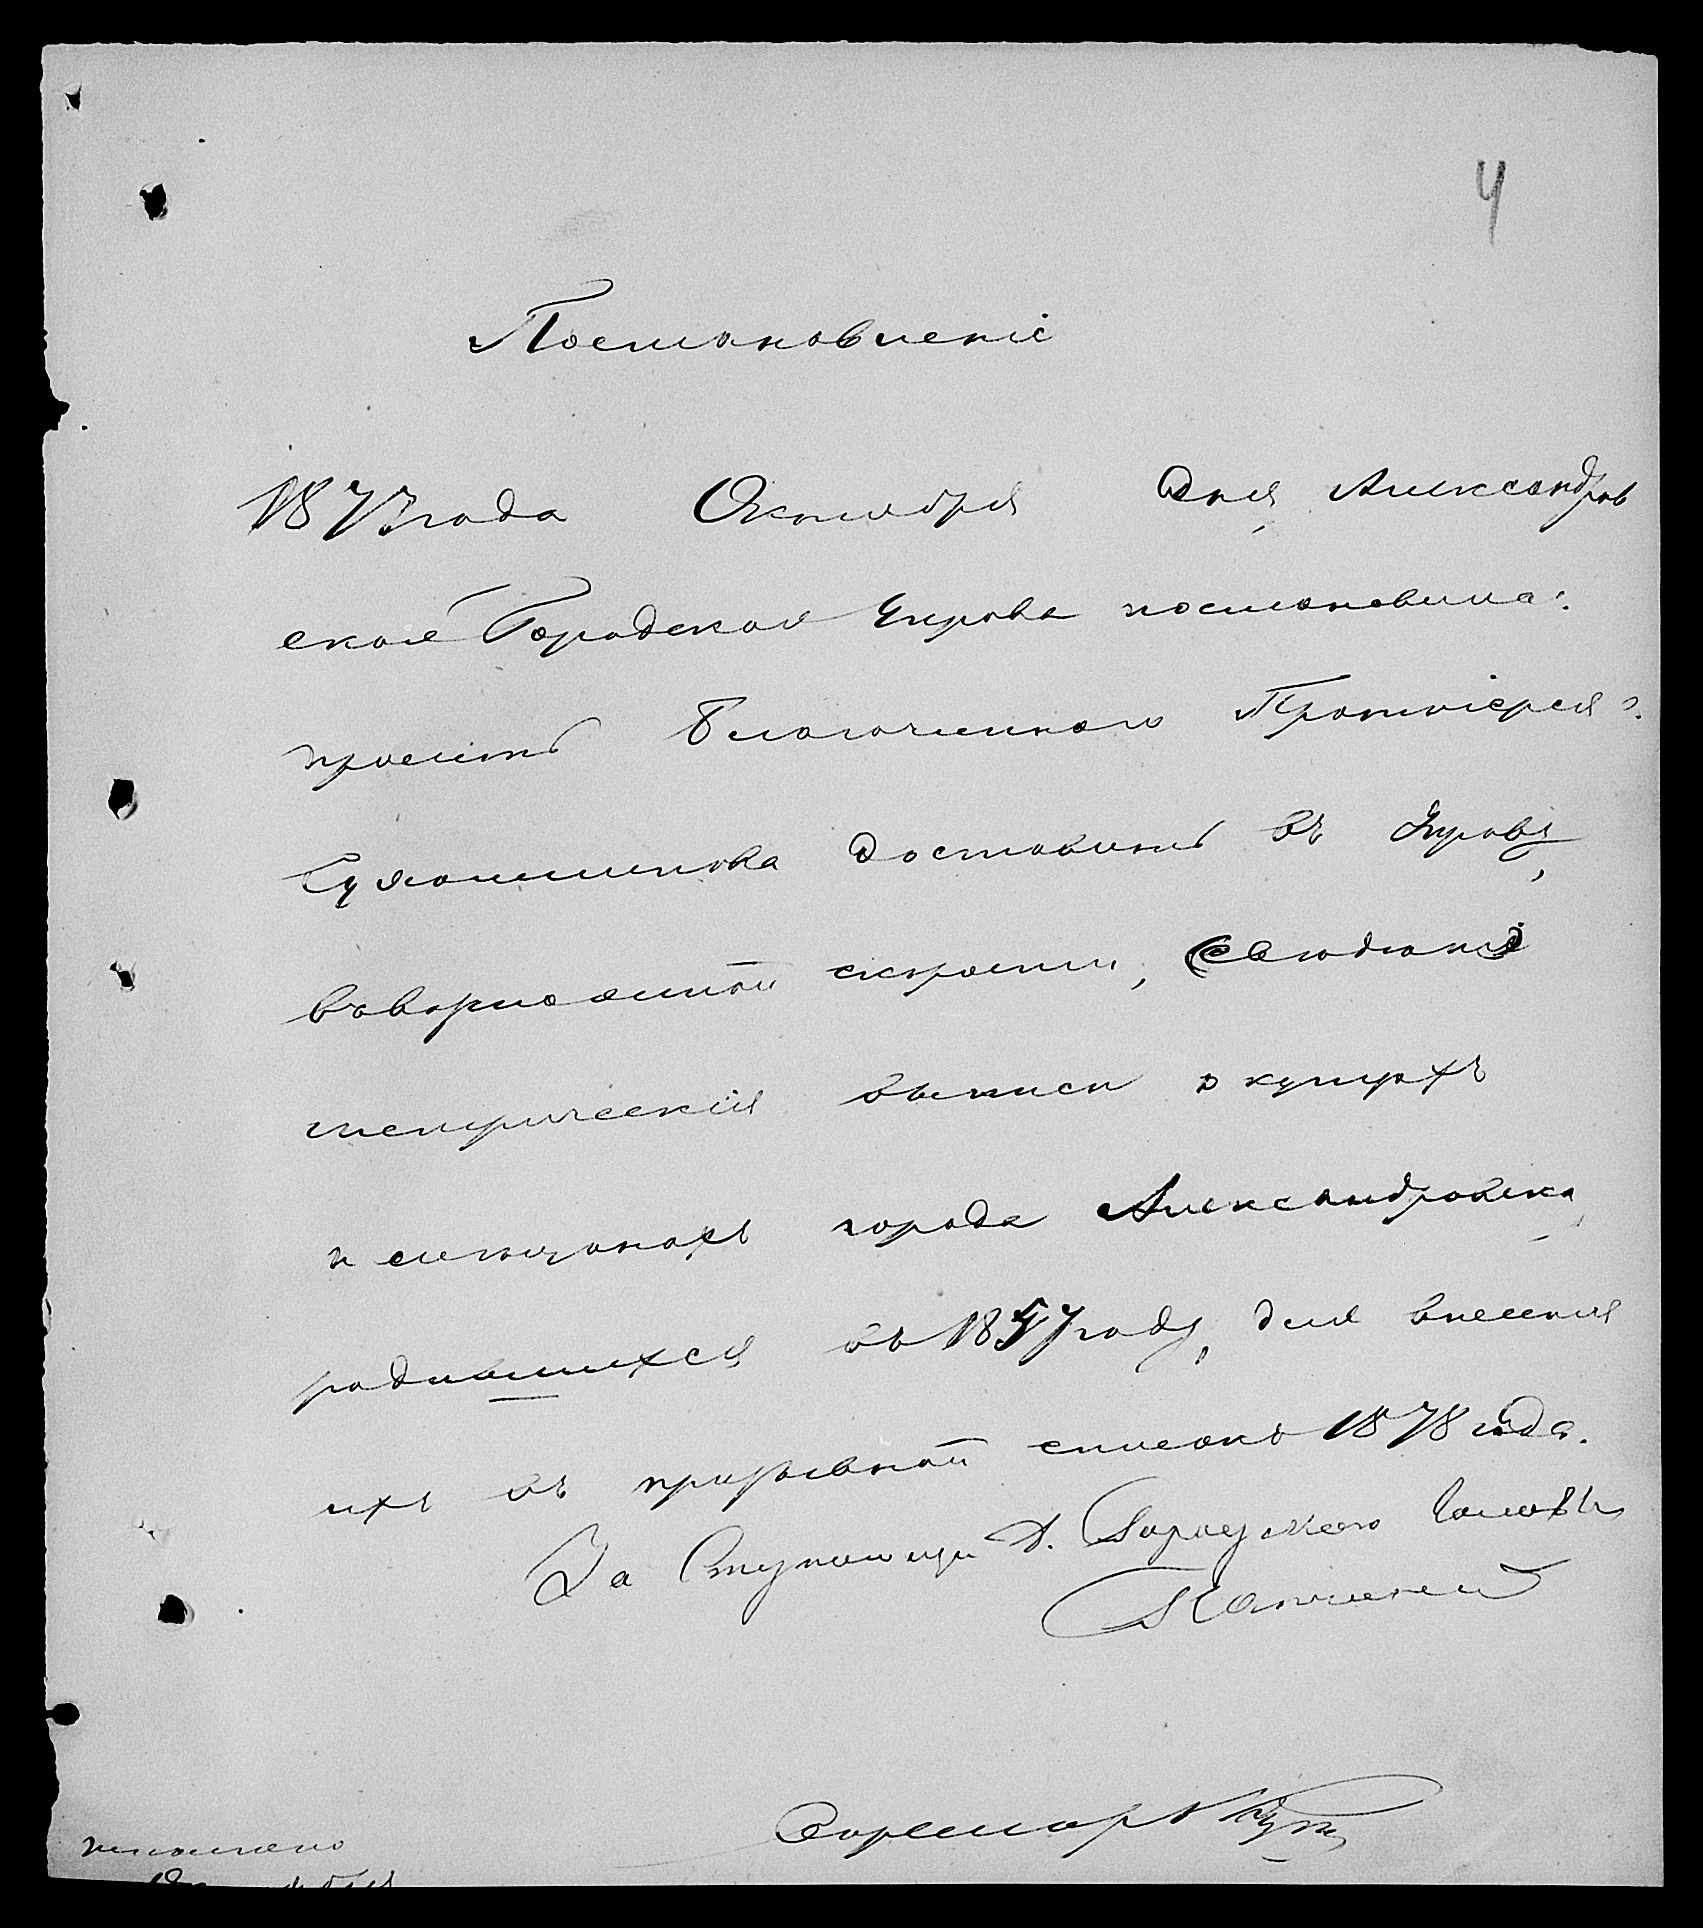 4
Постановленіе
1877 года Октября дня, Александров
ская Городская Управа постановила:
просить Благочиннаго Протоіерея
доставить въ Управу,
въ возможной скорости, свѣдѣнія
метрическія выписи о купцахъ
и мѣщанахъ города Александровска,
родившихся въ 1857 году, для внесенія
ихъ въ призывной списокъ 1878 года.
За Отсутствіемъ Городскаго Головы
Секретарь
Исполнено